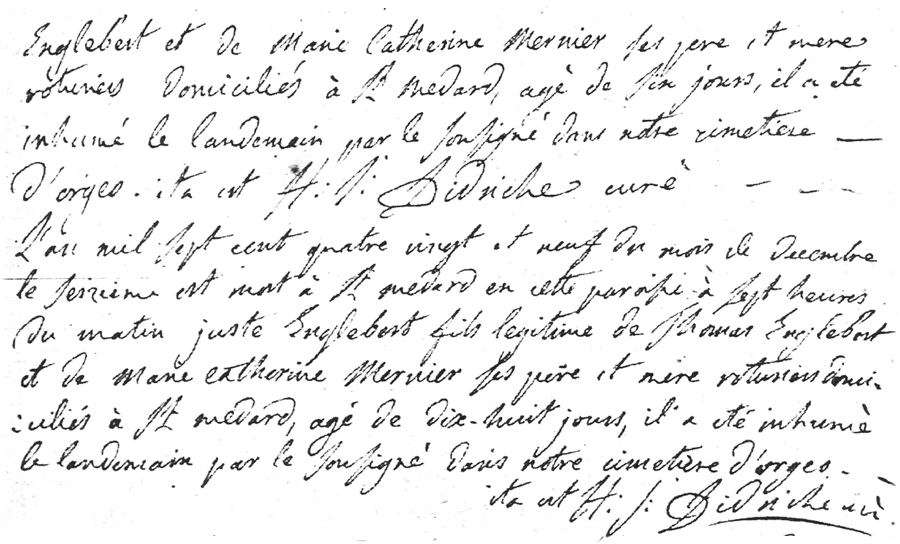 Englebert et de Marie Catherine Mernier ses pere et mere
roturiers domiciliés à St medard, agé de six jours, il a eté
inhumé le landemain par le sousigné dans notre cimetiere —
d'orgeo. ita est H: J: Didriche curé — — —
L'an mil sept cent quatre vingt et neuf du mois de decembre
le seizieme est mort à St medard en cette paroisse à sept heures
du matin juste Englebert fils legitime de Thomas Englebert
et de Marie catherine Mernier ses pére et mére roturiers domi-
:ciliés à St medard, agé de dix-huit jours, il a eté inhumé
le landemain par le sousigné dans notre cimetière d'orgeo.
ita est H: J: Didriche curé